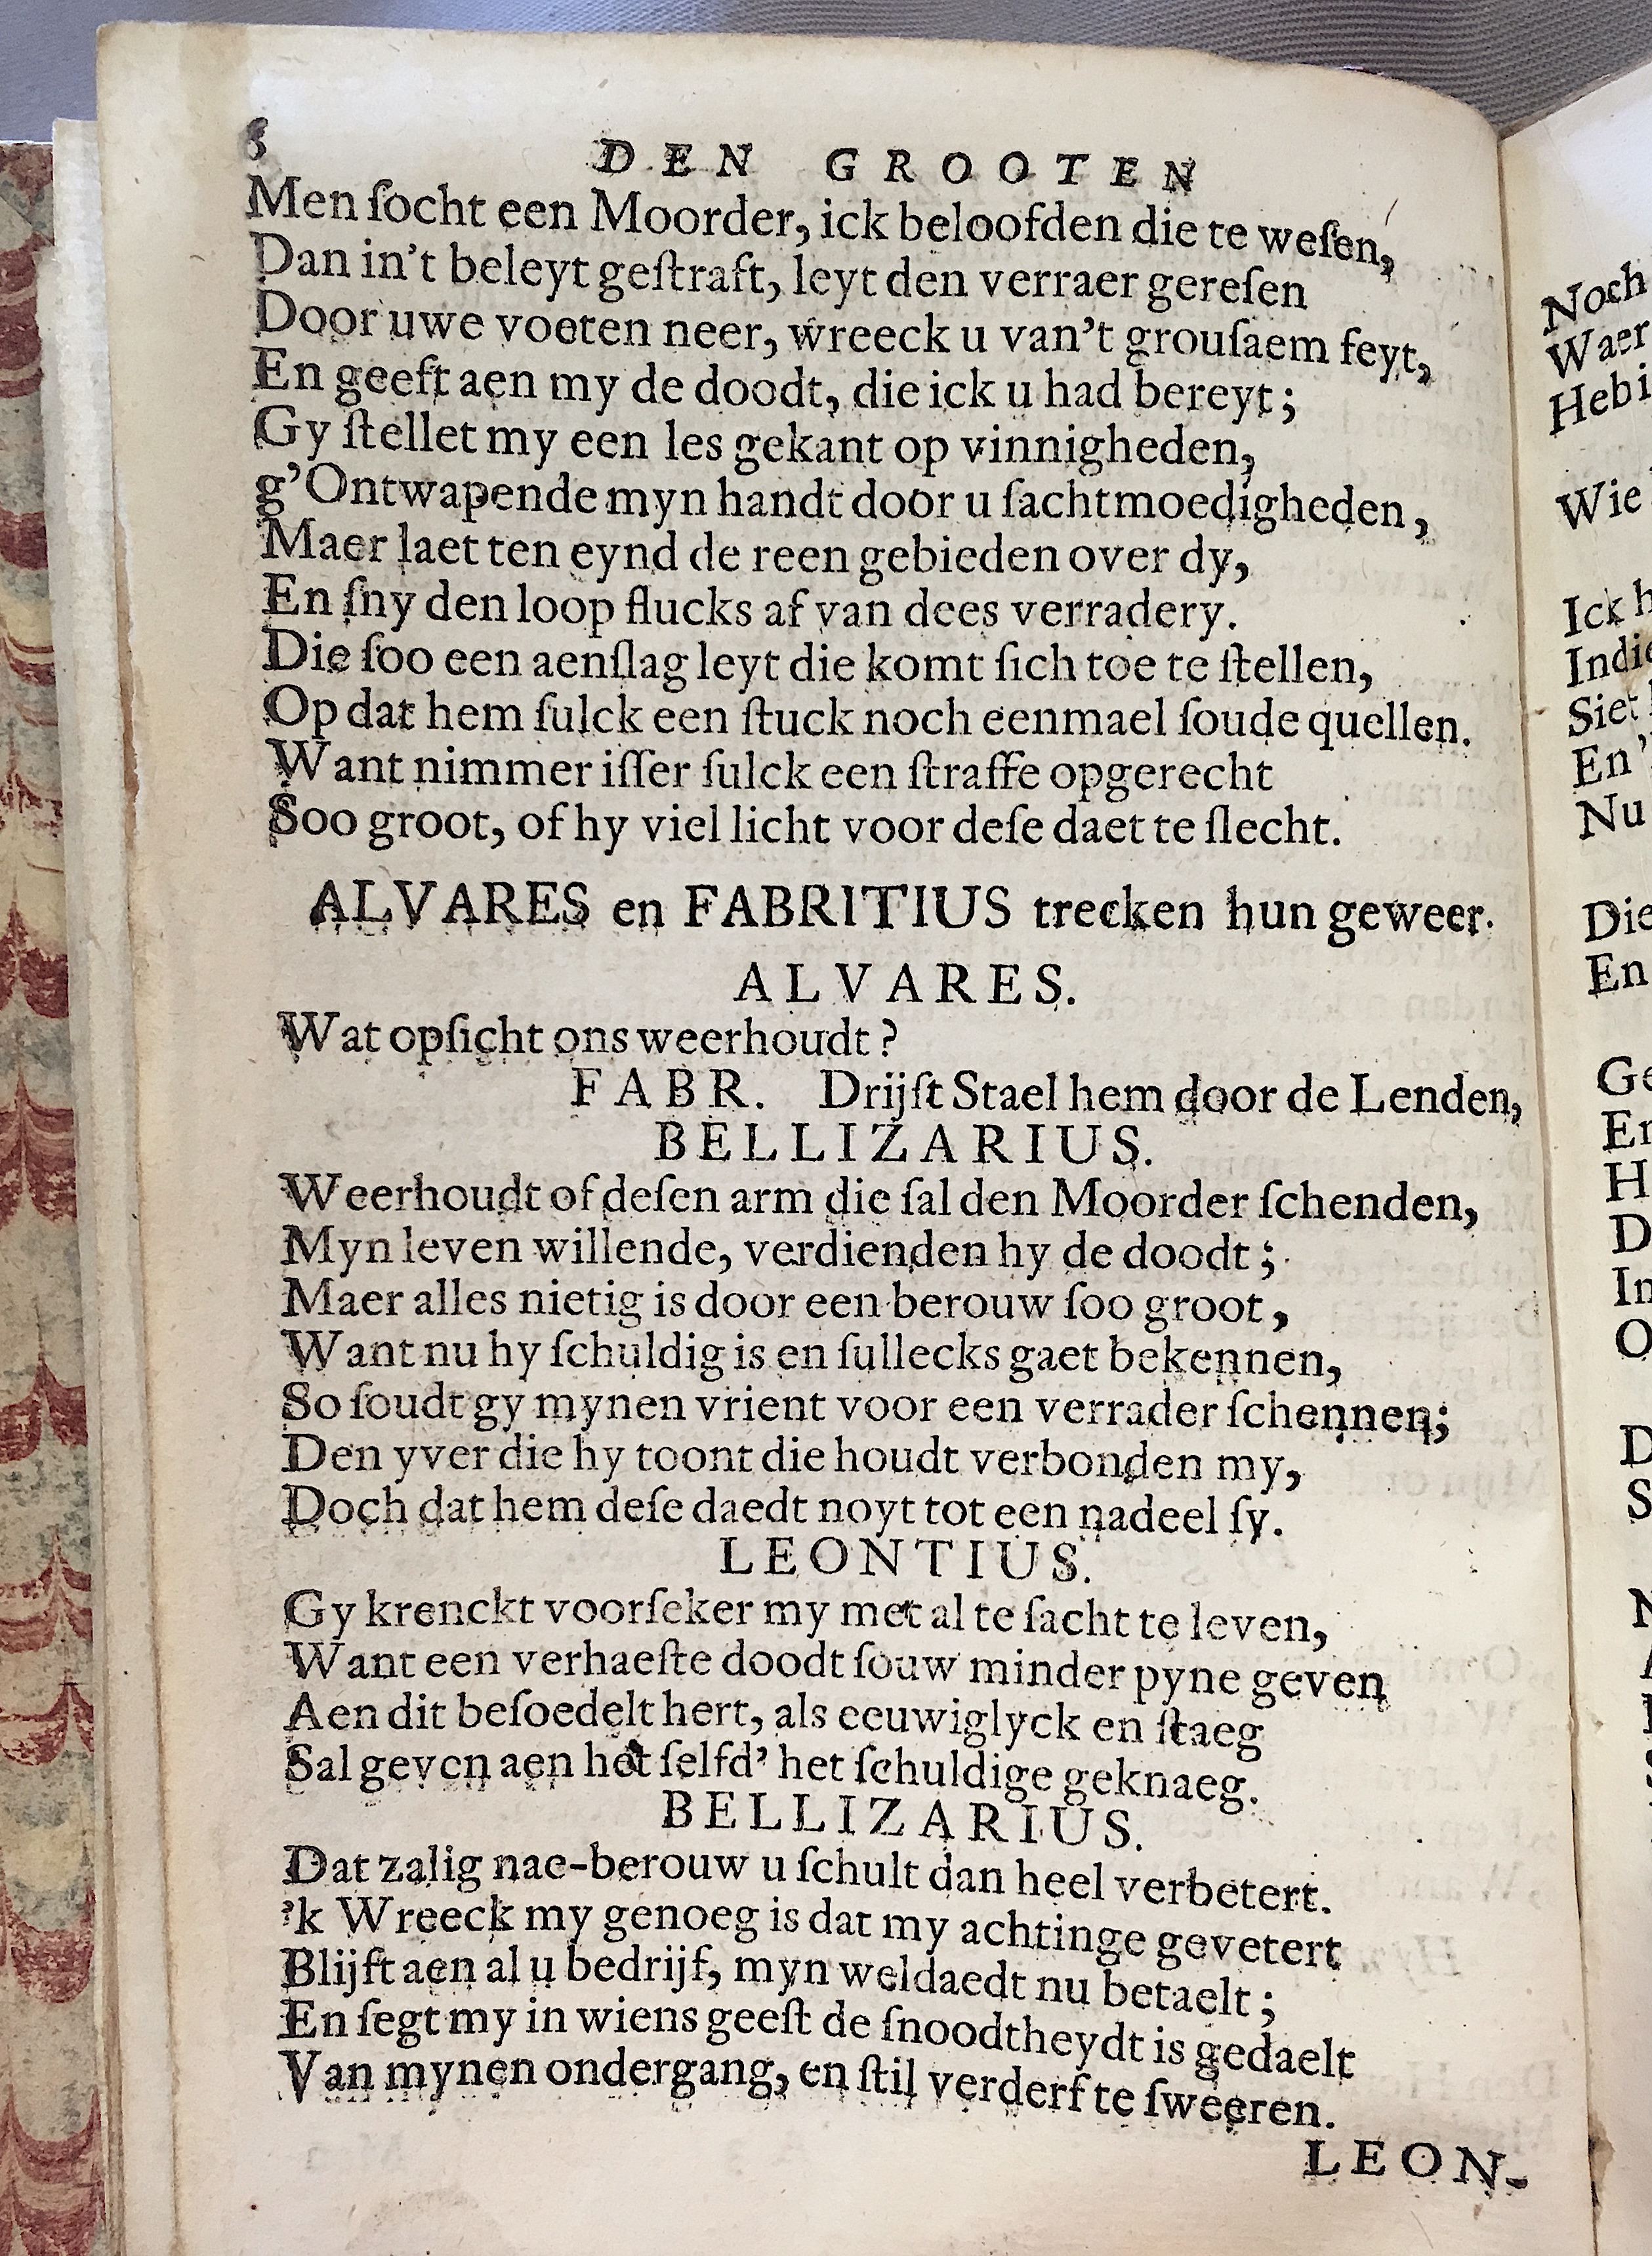 8 DEN GROOTEN
Men ſocht een Moorder, ick beloofden die te weſen,
Dan in't beleyt geſtraft, leyt den verraer gereſen
Door uwe voeten neer, wreeck u van't grouſaem feyt,
En geeft aen my de doodt, die ick u had bereyt;
Gy ſtellet my een les gekant op vinnigheden,
g'Ontwapende myn handt door u ſachtmoedigheden,
Maer laet ten eynd de reen gebieden over dy,
En ſny den loop flucks af van dees verradery.
Die ſoo een aenſlag leyt die komt ſich toe te ſtellen,
Op dat hem ſulck een ſtuck noch eenmael ſoude quellen.
Want nimmer iſſer ſulck een ſtraffe opgerecht
Soo groot, of hy viel licht voor deſe daet te ſlecht.
ALVARES en FABRITIUS trecken hun geweer.
ALVARES.
Wat opſicht ons weerhoudt?
FABR. Drijſt Stael hem door de Lenden,
BELLIZARIUS.
Weerhoudt of deſen arm die ſal den Moorder ſchenden,
Myn leven willende, verdienden hy de doodt;
Maer alles nietig is door een berouw ſoo groot,
Want nu hy ſchuldig is en ſullecks gaet bekennen,
So ſoudt gy mynen vrient voor een verrader ſchennen;
Den yver die hy toont die houdt verbonden my,
Doch dat hem deſe daedt noyt tot een nadeel ſy.
LEONTIUS.
Gy krenckt voorſeker my met al te ſacht te leven,
Want een verhaeſte doodt ſouw minder pyne geven
Aen dit beſoedelt hert, als eeuwiglyck en ſtaeg
Sal geven aen het ſelfd' het ſchuldige geknaeg.
BELLIZARIUS.
Dat zalig nae-berouw u ſchult dan heel verbetert.
'k Wreeck my genoeg is dat my achtinge gevetert
Blijft aen al u bedrijf, myn weldaedt nu betaelt;
En ſegt my in wiens geeſt de ſnoodtheydt is gedaelt
Van mynen ondergang, en ſtil verderf te ſweeren.
LEON-
Noch
Waer
Heb i
Wie
Ick h
Indie
Siet
En '
Nu
Die
En
Ge
En
H
D
In
O
D
S